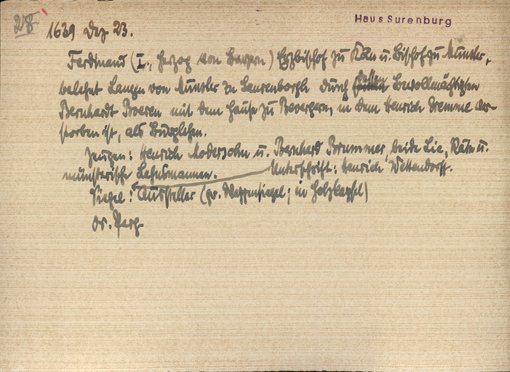 28 1639 Dez 23. Haus Surenburg
Ferdinand (I., Herzog von Bayern) Erzbischof zu Köln u. Bischof zu Münster,
belehnt Langen von Münster zu Laurenborgh durch Bevollmächtigten
Bernhardt Broeren mit dem Hause zu Bevergern, in dem Henrich Gremme ver-
storben ist, als Burglehen.
Zeugen: Henrich Modersohn u. Bernhard Brummer, beide Lic, Räte u.
münsterische Lehnsmannen. Unterschrift: Henrich Wettendorff.
Siegel: Aussteller (gr. Wappensiegel; in Holzkapsel)
Or. Perg